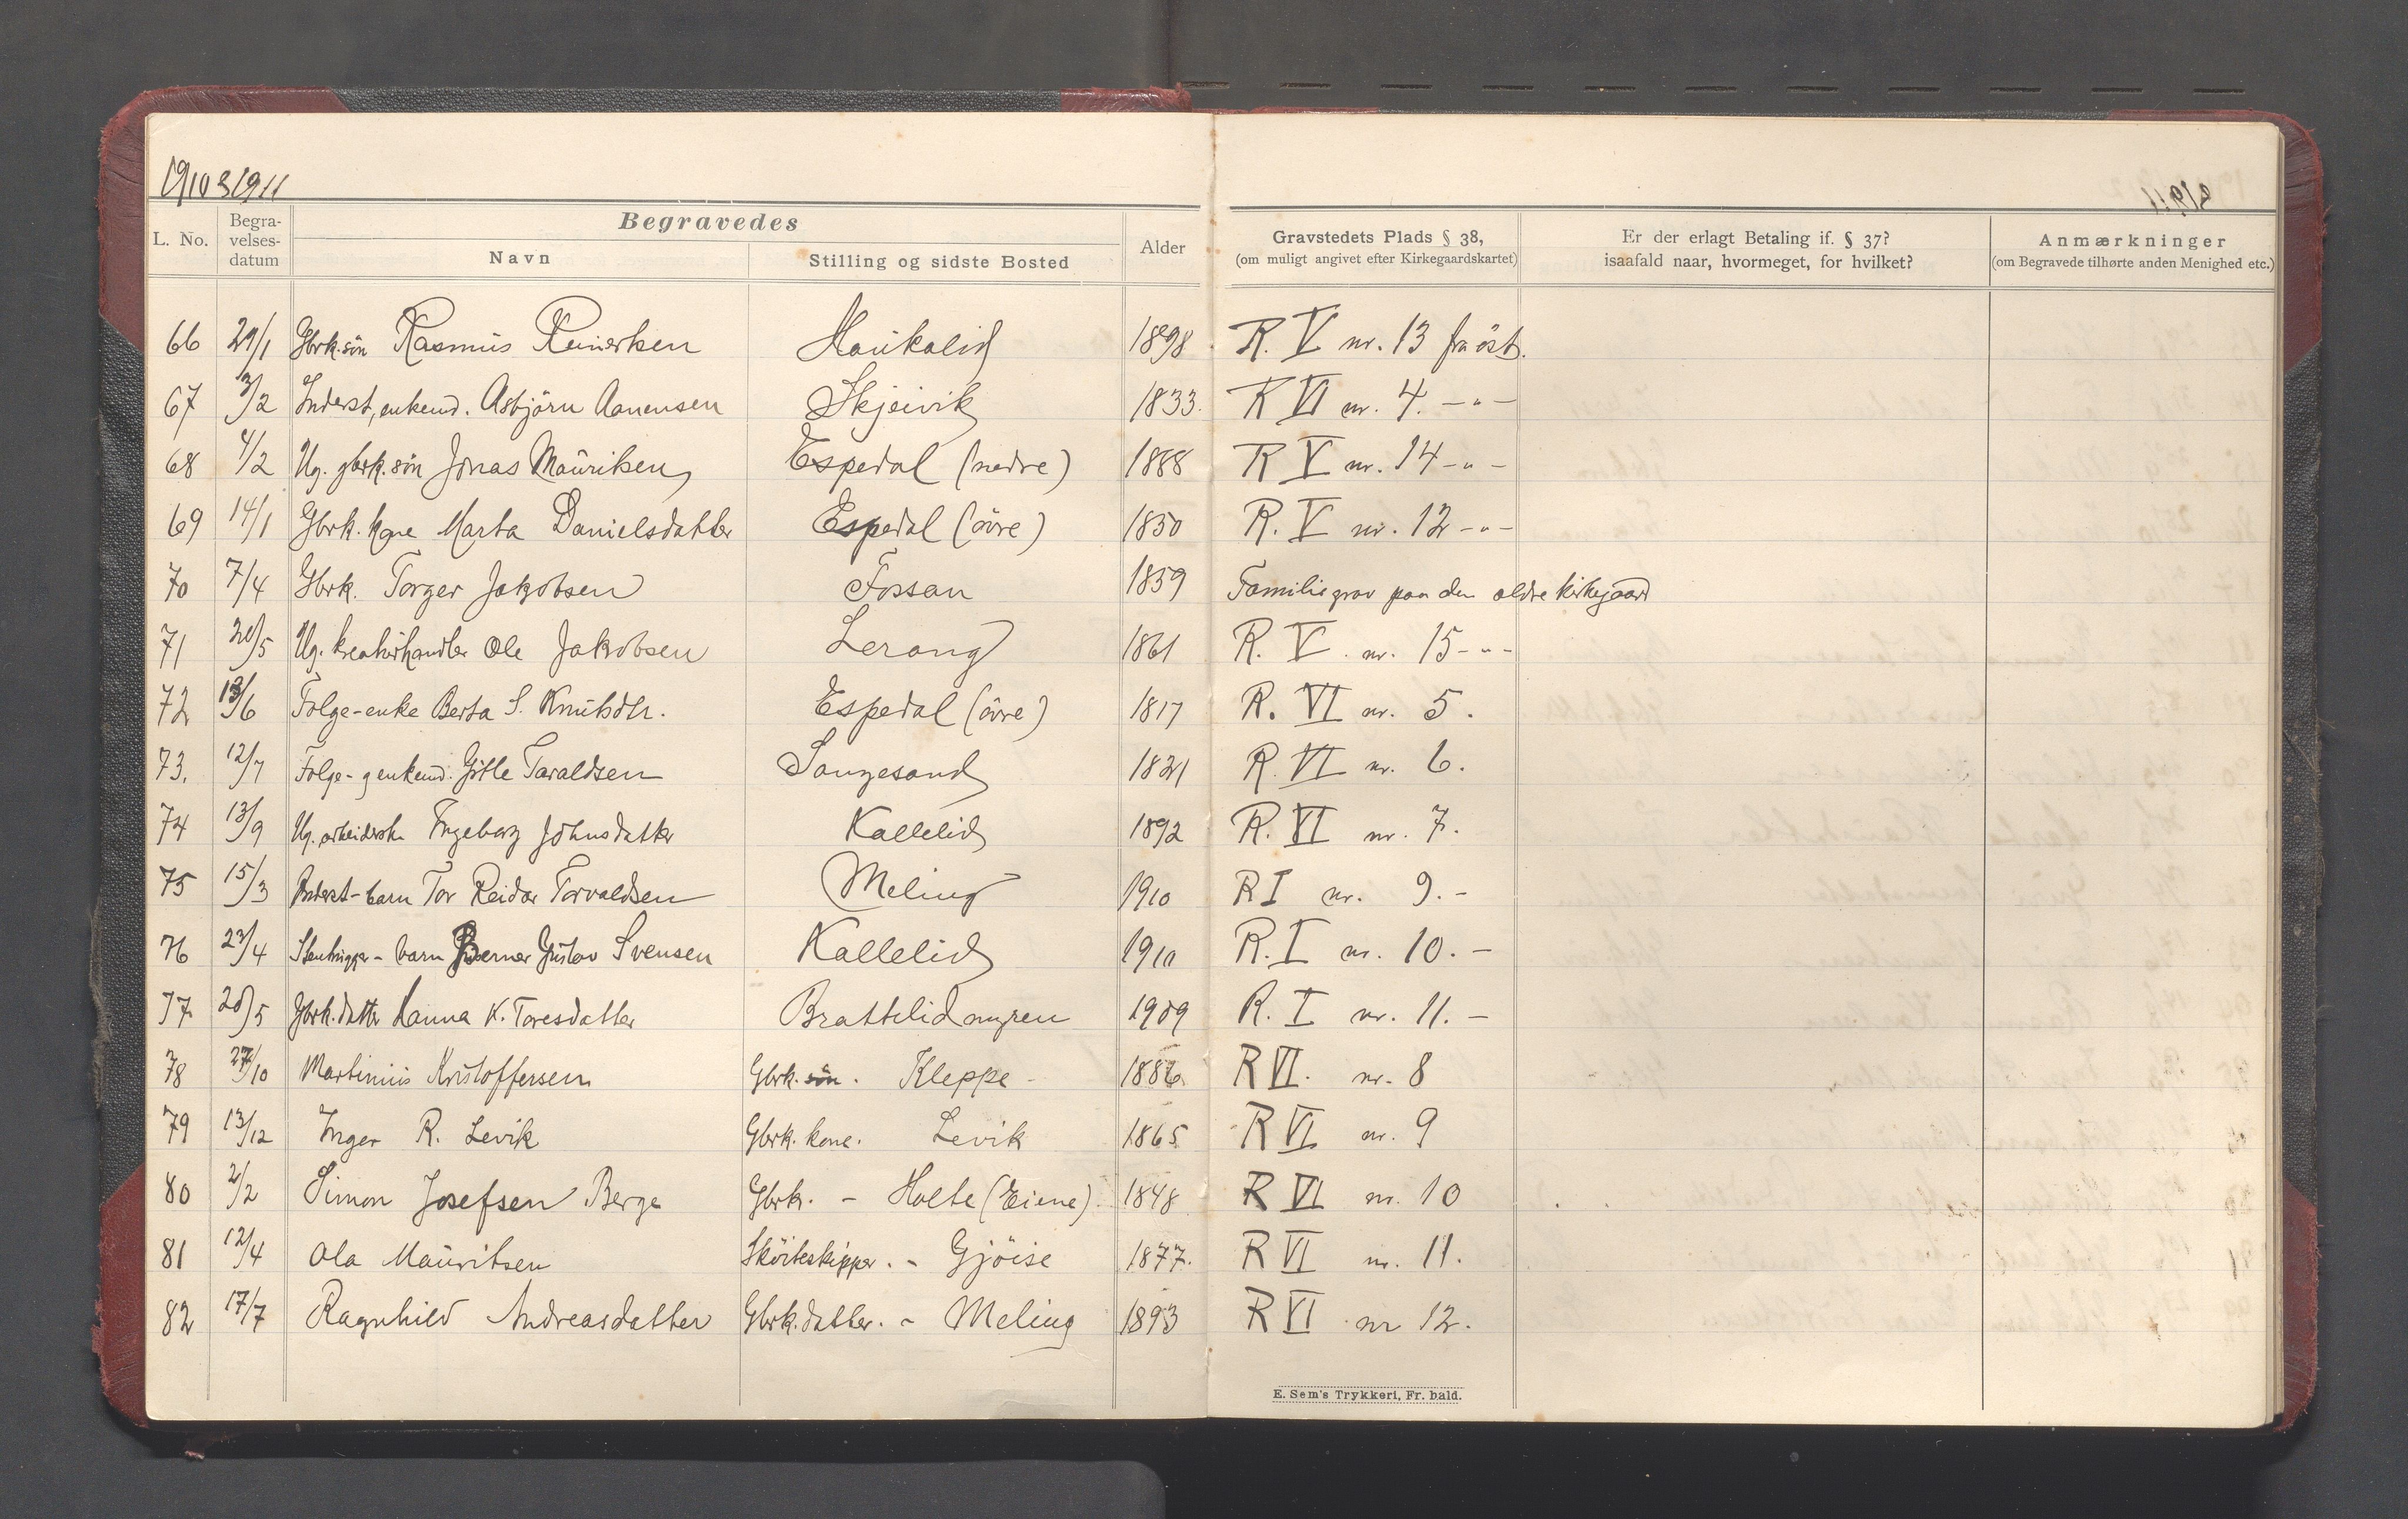 1910 & 1911
L. No. Begravelses-datum Begravedes Navn Stilling og sidste Bosted Alder Gravstedets Plads § 38, (om muligt angivet efter Kirkegaardskartet) Er der erlagt Betaling if. § 37? isaafald naar, hvormeget, for hvilket? Anmærkninger (om Begravede tilhørte anden Menighed etc.)
66 29/1 Gbrk. sön Rasmus Reinertsen Haukalid 1898 R. V nr. 13 fra öst.
67 3/2 Inderst, enkem. Asbjörn Aanensen Skjeivik 1833. R VI nr. 4. - " -
68 4/2 Ug. gbrk. sön Jonas Mauritsen Espedal (nedre) 1888 R V nr. 14 - " -
69 14/1 Gbrk. kone Marta Danielsdatter Espedal (övre) 1850 R. V nr. 12 - " -
70 7/4 Gbrk. Torger Jakobsen Fossan 1859 Familiegrav paa den ældre kirkegaard
71 20/5 Ug. kreaturhandler Ole Jakobsen Lerang 1861 R. V. nr. 15 - " -
72 13/6 Folge-enke Berta S. Knutsdtr. Espedal (övre) 1817 R. VI nr. 5.
73. 12/7 Folge- g enkem. Gitle Taraldsen Songesand 1821 R. VI nr. 6.
74 13/9 Ug. arbeiderske Ingeborg Johnsdatter Kallelid 1892 R. VI nr. 7.
75 15/3 Inderst-barn Tor Reidar Torvaldsen Meling 1910 R I nr. 9. -
76 23/4 Stenhugger-barn Berner Gustav Svensen Kallelid 1910 R. I nr. 10. -
77 20/5 Gbrk. datter Hanna K. Toresdatter Brattelidmyren 1909 R. I nr. 11. -
78 27/10 Martinius Kristoffersen Gbrk. sön. Kleppe - 1886. R VI. nr. 8
79 13/12 Inger R. Levik Gbrk. kone. Levik 1865 R VI nr. 9
80 2/2 Simon Josefsen Berge Gbrk. - Holte (Eiene) 1848 R VI nr. 10
81 12/4 Ola Mauritsen Sköiteskipper. - Gjöise 1877. R VI nr. 11.
82 17/7 Ragnhild Andreasdatter Gbrk. datter. - Meling 1893 R VI nr 12.
E. Sem's Trykkeri, Fr. hald.